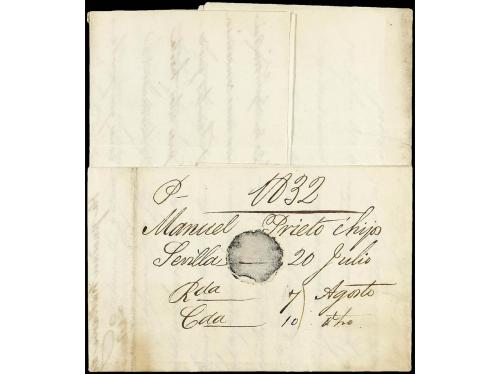 P- 1832
Manuel Prieto é hijo
Sevilla — 20 Julio
Rda — 7 Agosto
Cda — 10